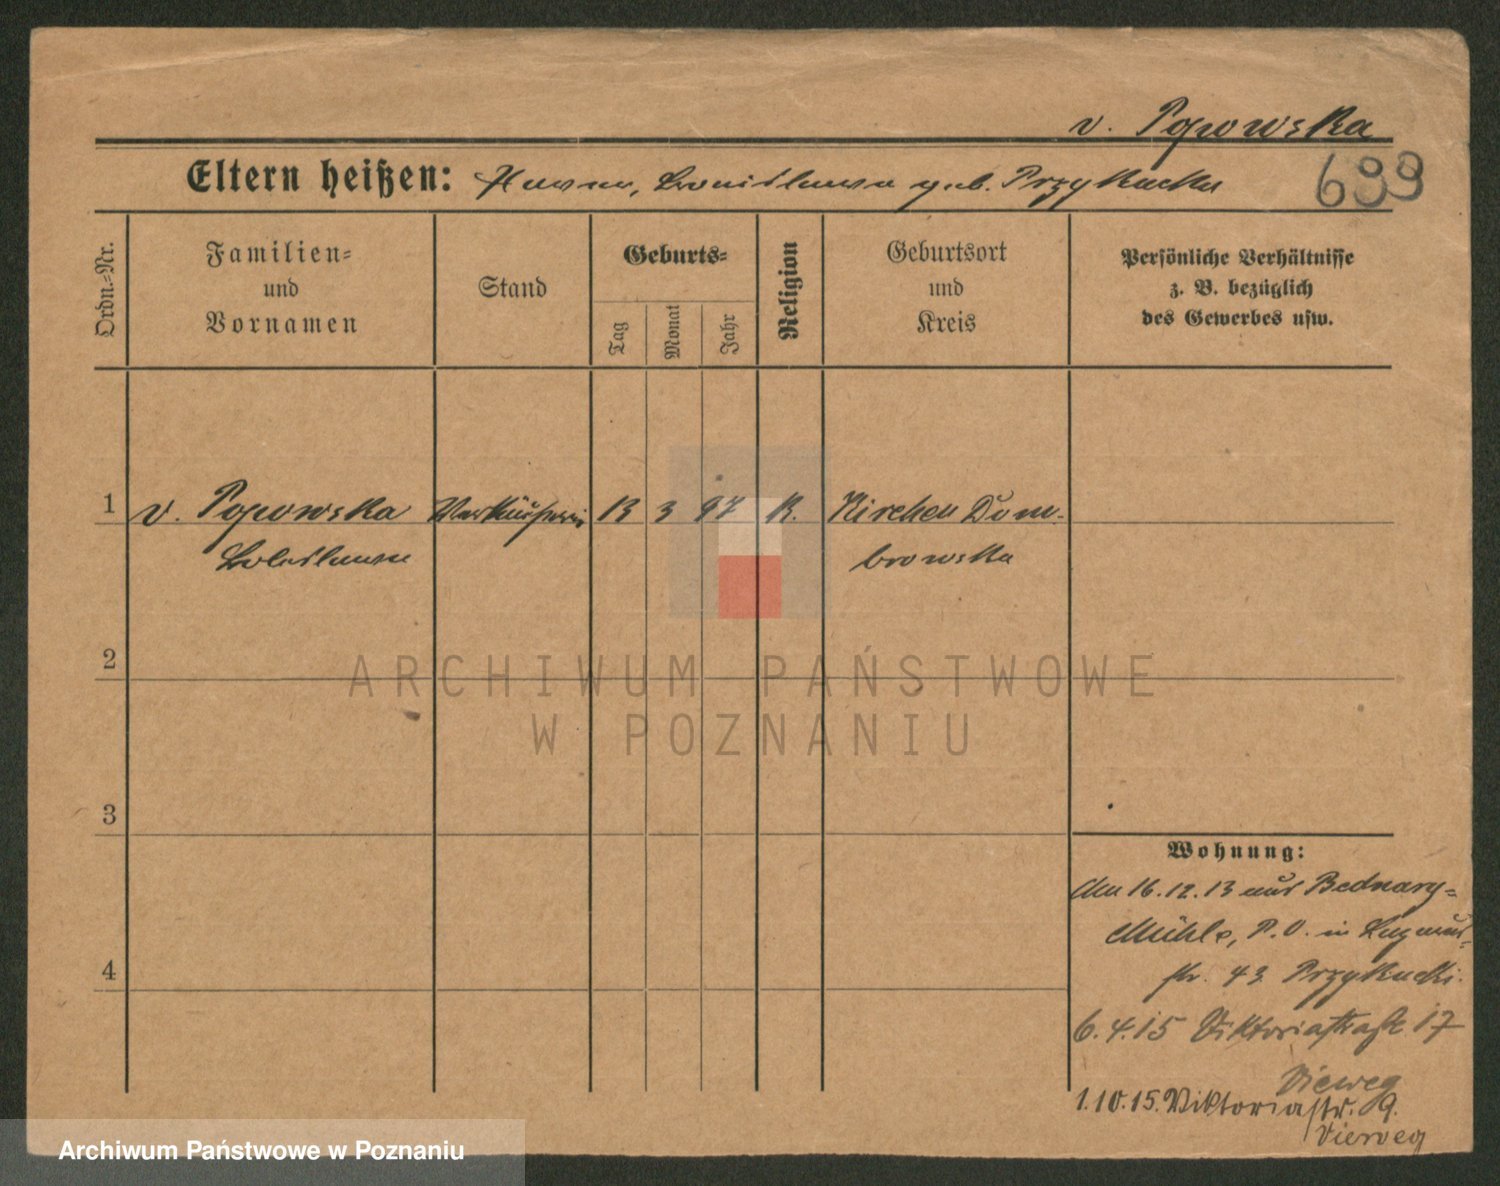 v. Popowska
699
Eltern heißen: geb. Przykucka
Ordn.-Nr.
Familien-
und
Vornamen
Stand
Geburts-
Tag
Monat
Jahr
Religion
Geburtsort
und
Kreis
Persönliche Verhältnisse
z. B. bezüglich
des Gewerbes usw.
1 v. Popowska Verkäuferin 13 3 97 K. Kirchen Dom-
Boleslawa browska
2
ARCHIWUM PAŃSTWOWE
W POZNANIU
3
4
Wohnung:
den 16.12.13 aus Bednary-
Mühle, P.O. in
str. 43 Przykucki.
6.4.15 Viktoriastraße 17
Vieweg
1.10.15. Viktoriastr. 9.
Vieweg
Archiwum Państwowe w Poznaniu